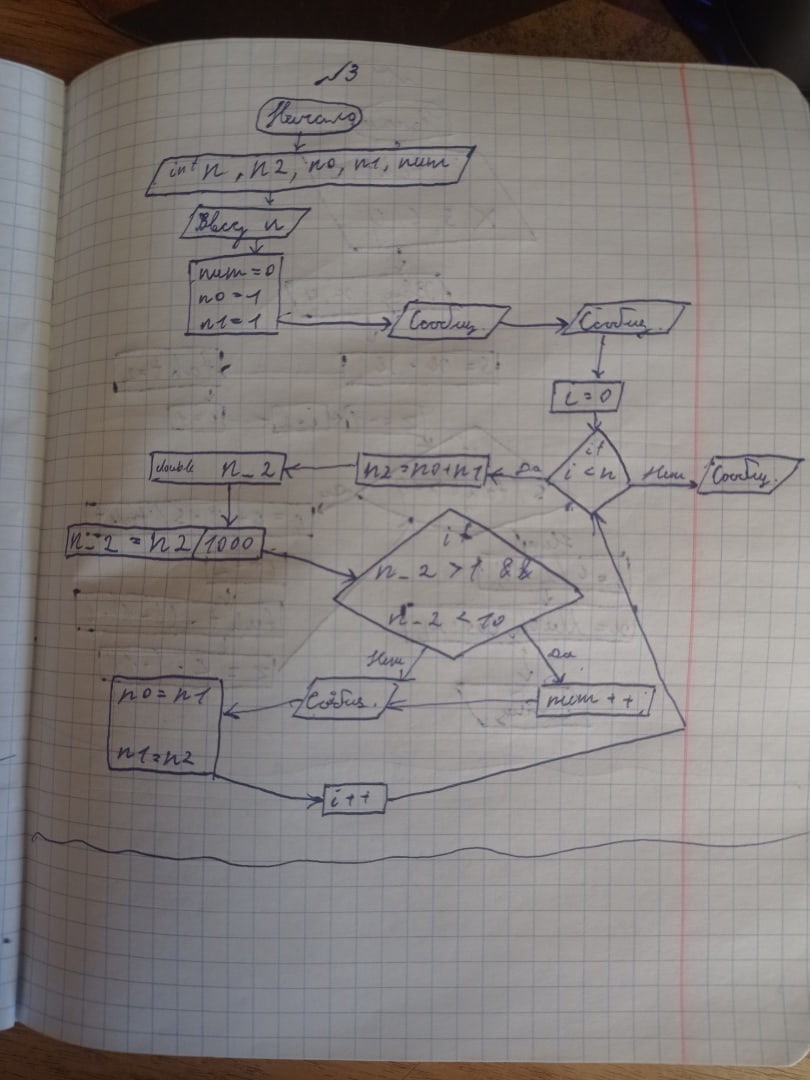 №3
Начало
int n, n2, n0, n1, num
Ввод n
num = 0
n0 = 1
n1 = 1
Сообщ.
Сообщ.
i = 0
if
i < n
Да
Нет
Сообщ.
n2 = n0 + n1
double n_2
n_2 = n2/1000
if
n_2 > 1 &&
n_2 < 10
Нет
Да
num ++
Сообщ.
n0 = n1
n1 = n2
i ++